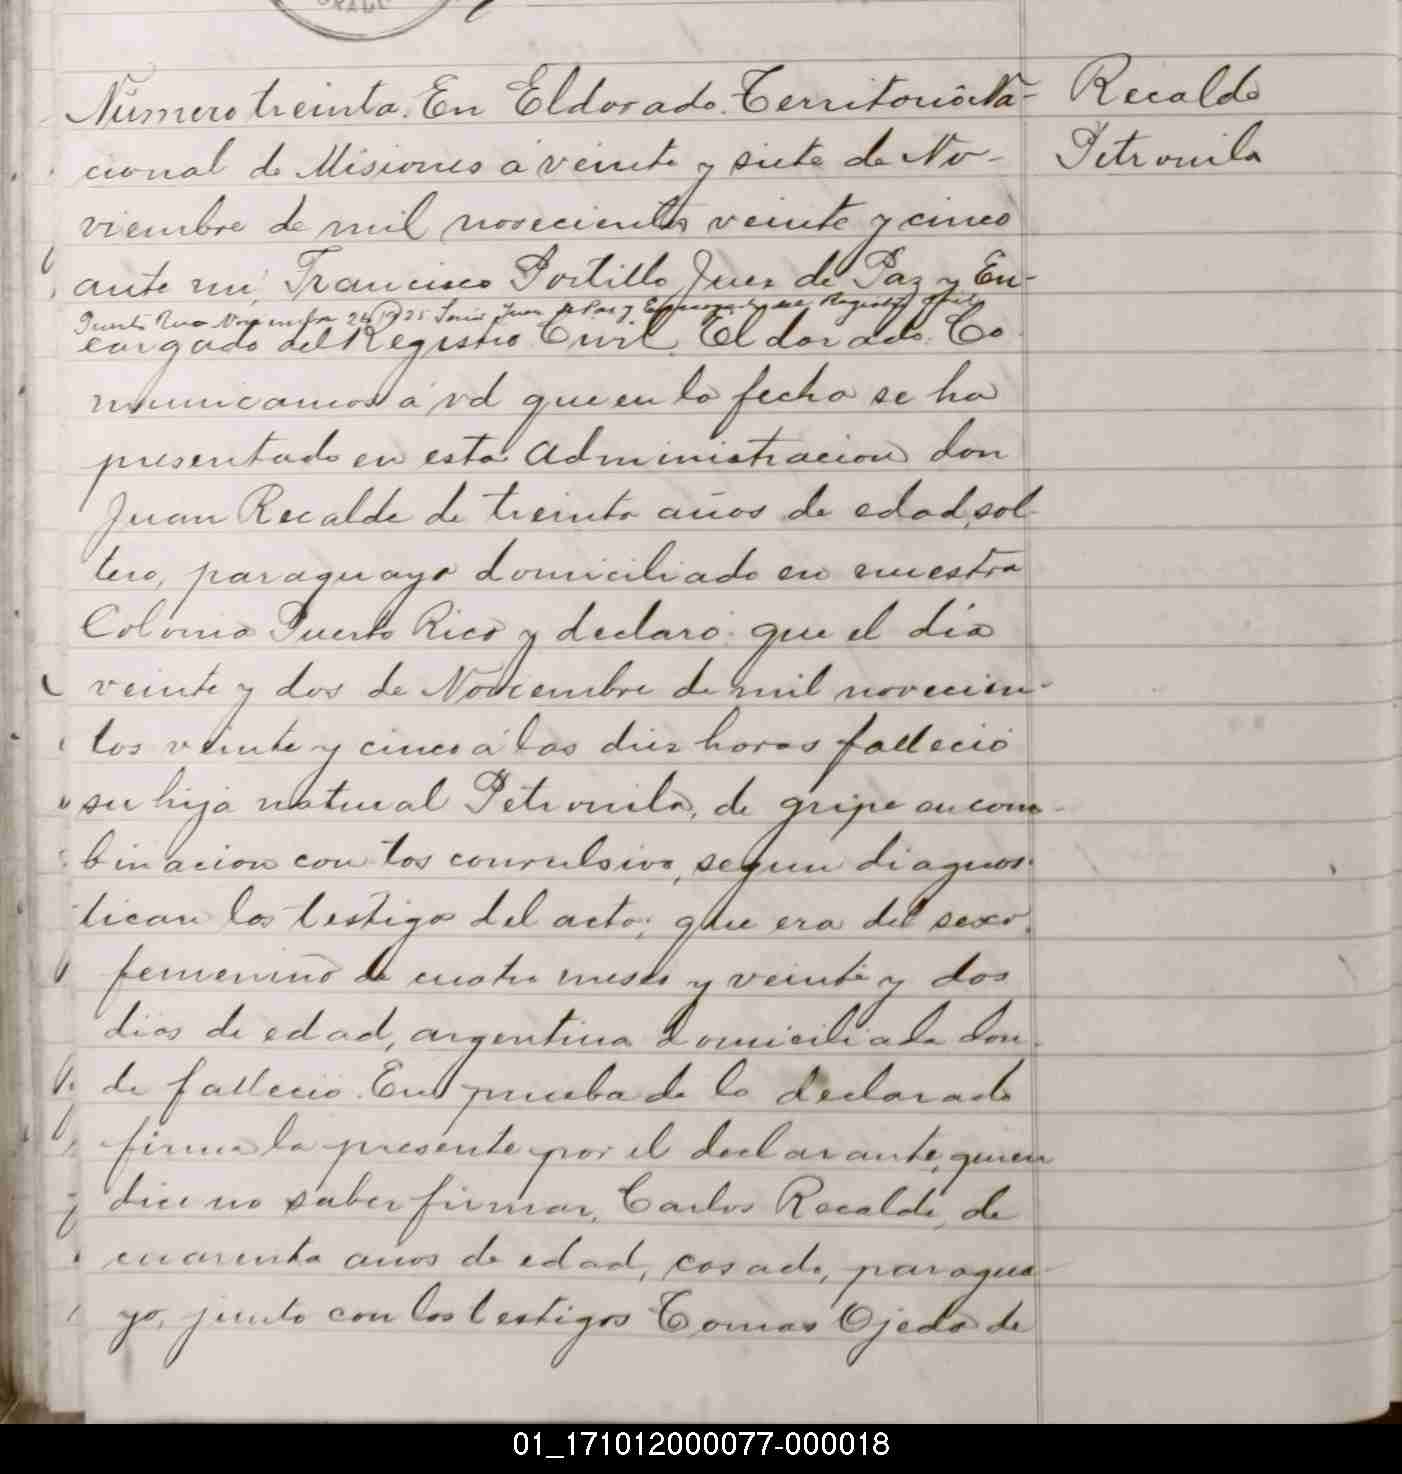 Número treinta. En Eldorado. Territorio Na-
cional de Misiones á veinte y siete de No-
viembre de mil novecientos veinte y cinco
ante mi, Francisco Portillo Juez de Paz y En-
Puerto Rico Noviembre 24 1925 Señor Juez de Paz y Encargado del Registro Civil
cargado del Registro Civil. Eldorado. Co
municamos á vd que en la fecha se ha
presentado en esta Administracion don
Juan Recalde de treinta años de edad, sol
tero, paraguayo domiciliado en nuestra
Colonia Puerto Rico y declaró: que el día
veinte y dos de Noviembre de mil novecien-
tos veinte y cinco á las diez horas falleció
su hija natural Petronila, de gripe en com-
binacion con tos convulsiva, segun diagnos-
tican los testigos del acto; que era del sexo
femenino de cuatro meses y veinte y dos
dias de edad, argentina domiciliada don-
de falleció. En prueba de lo declarado
firma la presente por el declarante, quien
dice no saber firmar, Carlos Recalde, de
cuarenta años de edad, casado, paragua-
yo, junto con los testigos Tomas Ojeda de
Recalde
Petronila
01_171012000077-000018